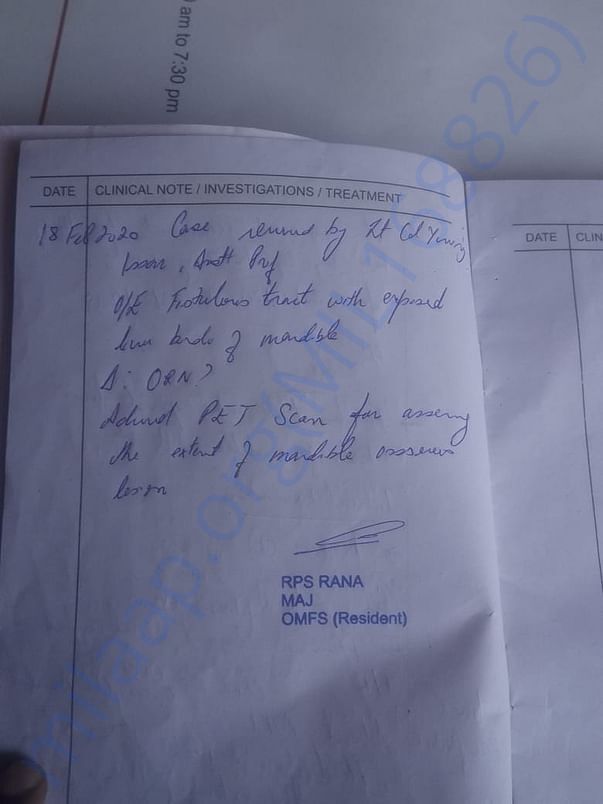 ) am to 7:30 pm
DATE CLINICAL NOTE / INVESTIGATIONS / TREATMENT
18 Feb 2020 Case by Lt Col
, Prof
O/E Fistulous tract with exposed
of mandible
Δ: ORN ?
Advised PET Scan for
the extent of mandible
RPS RANA
MAJ
OMFS (Resident)
DATE CLIN
milaap.org(MIL168826)